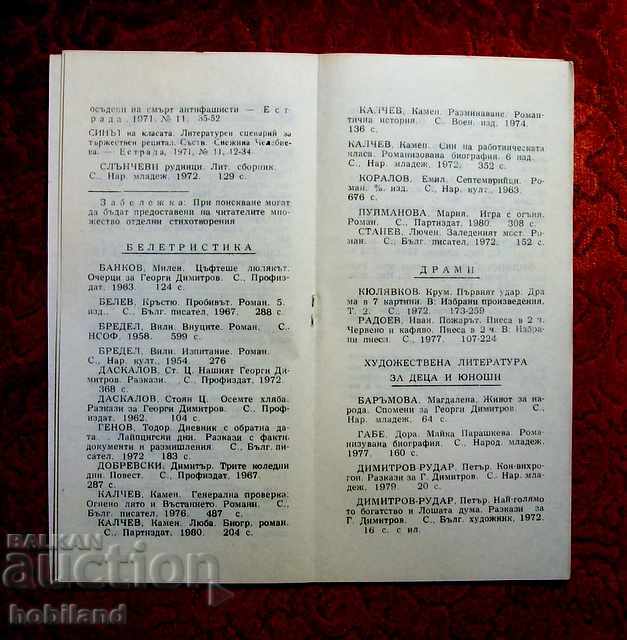 осъдени на смърт антифашисти — Е с т
р а д а, 1971, № 11, 35-52
СИНЪТ на класата. Литературен сценарий за
тържествен рецитал. Съств. Снежина
ва. — Естрада, 1971, № 11, 12-34.
СЛЪНЧЕВИ рудници. Лит. сборник.
С., Нар. младеж. 1972. 129 с.
З а б е л е ж к а: При поискване могат
да бъдат предоставени на читателите мно
жество отделни стихотворения
БЕЛЕТРИСТИКА
БАНКОВ, Милен. Цъфтеше люлякът.
Очерци за Георги Димитров. С., Профиз-
дат. 1963. 124 с.
БЕЛЕВ, Кръстю. Пробивът. Роман. 5.
изд. С., Бълг. писател, 1967. 288 с.
БРЕДЕЛ, Вили. Внуците. Роман. С.,
НСОФ, 1958. 599 с.
БРЕДЕЛ, Вили. Изпитание. Роман.
С., Нар. култ., 1954. 276
ДАСКАЛОВ, Ст. Ц. Нашият Георги Ди-
митров. Разкази. С., Профиздат, 1972.
368 с.
ДАСКАЛОВ, Стоян Ц. Осемте хляба.
Разкази за Георги Димитров. С., Проф-
издат, 1962. 104 с.
ГЕНОВ, Тодор. Дневник с обратна да-
та. Лайпцигски дни. Разкази с факти,
документи и размишления. С., Бълг.
писател. 1972 183 с.
ДОБРЕВСКИ, Димитър. Трите коледни
дни. Повест. С., Профиздат, 1967.
287 с.
КАЛЧЕВ, Камен. Генерална проверка.
Огнено лято и Въстанието. Романи. С.,
Бълг. писател, 1976. 487 с.
КАЛЧЕВ, Камен. Люба. Биогр. роман.
С., Партиздат. 1980. 204 с.
КАЛЧЕВ, Камен. Разминаване. Роман-
тична история. С., Воен. изд. 1974.
136 с.
КАЛЧЕВ, Камен. Син на работническата
класа. Романизована биография. 6 изд.
С., Нар. младеж, 1972. 352 с.
КОРАЛОВ, Емил. Септемврийци. Ро-
ман. изд. С., Нар. култ., 1963.
676 с.
ПУЙМАНОВА, Мария. Игра с огъня.
Роман. С., Партиздат. 1980. 308 с.
СТАНЕВ, Лючен. Заледеният мост. Ро-
ман. С., Бълг. писател, 1972. 152 с.
ДРАМИ
КЮЛЯВКОВ, Крум. Първият удар. Дра
ма в 7 картини. В: Избрани произведения.
Т. 2. С., 1972. 173-259
РАДОЕВ, Иван. Пожарът. Пиеса в 2 ч. В:
Червено и кафяво. Пиеса в 2 ч. В: Избра-
ни пиеси. С., 1977. 107-224
ХУДОЖЕСТВЕНА ЛИТЕРАТУРА
ЗА ДЕЦА И ЮНОШИ
БАРЪМОВА, Магдалена. Живот за на-
рода. Спомени за Георги Димитров. С.,
Нар. младеж, 64 с.
ГАБЕ, Дора. Майка Парашкева. Рома-
низувана биография. С., Народ. младеж,
1977. 160 с.
ДИМИТРОВ-РУДАР, Петър. Кон-вихро-
гон. Разкази за Г. Димитров. С., Нар. мла-
деж. 1979. 20 с.
ДИМИТРОВ-РУДАР, Петър. Най-голямо
то богатство и Лошата дума. Разкази за
Г. Димитров. С., Бълг. художник, 1972.
16 с. с ил.
BALKAN
auction
hobiland